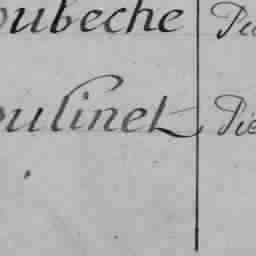 oubeche
oulinet Pie